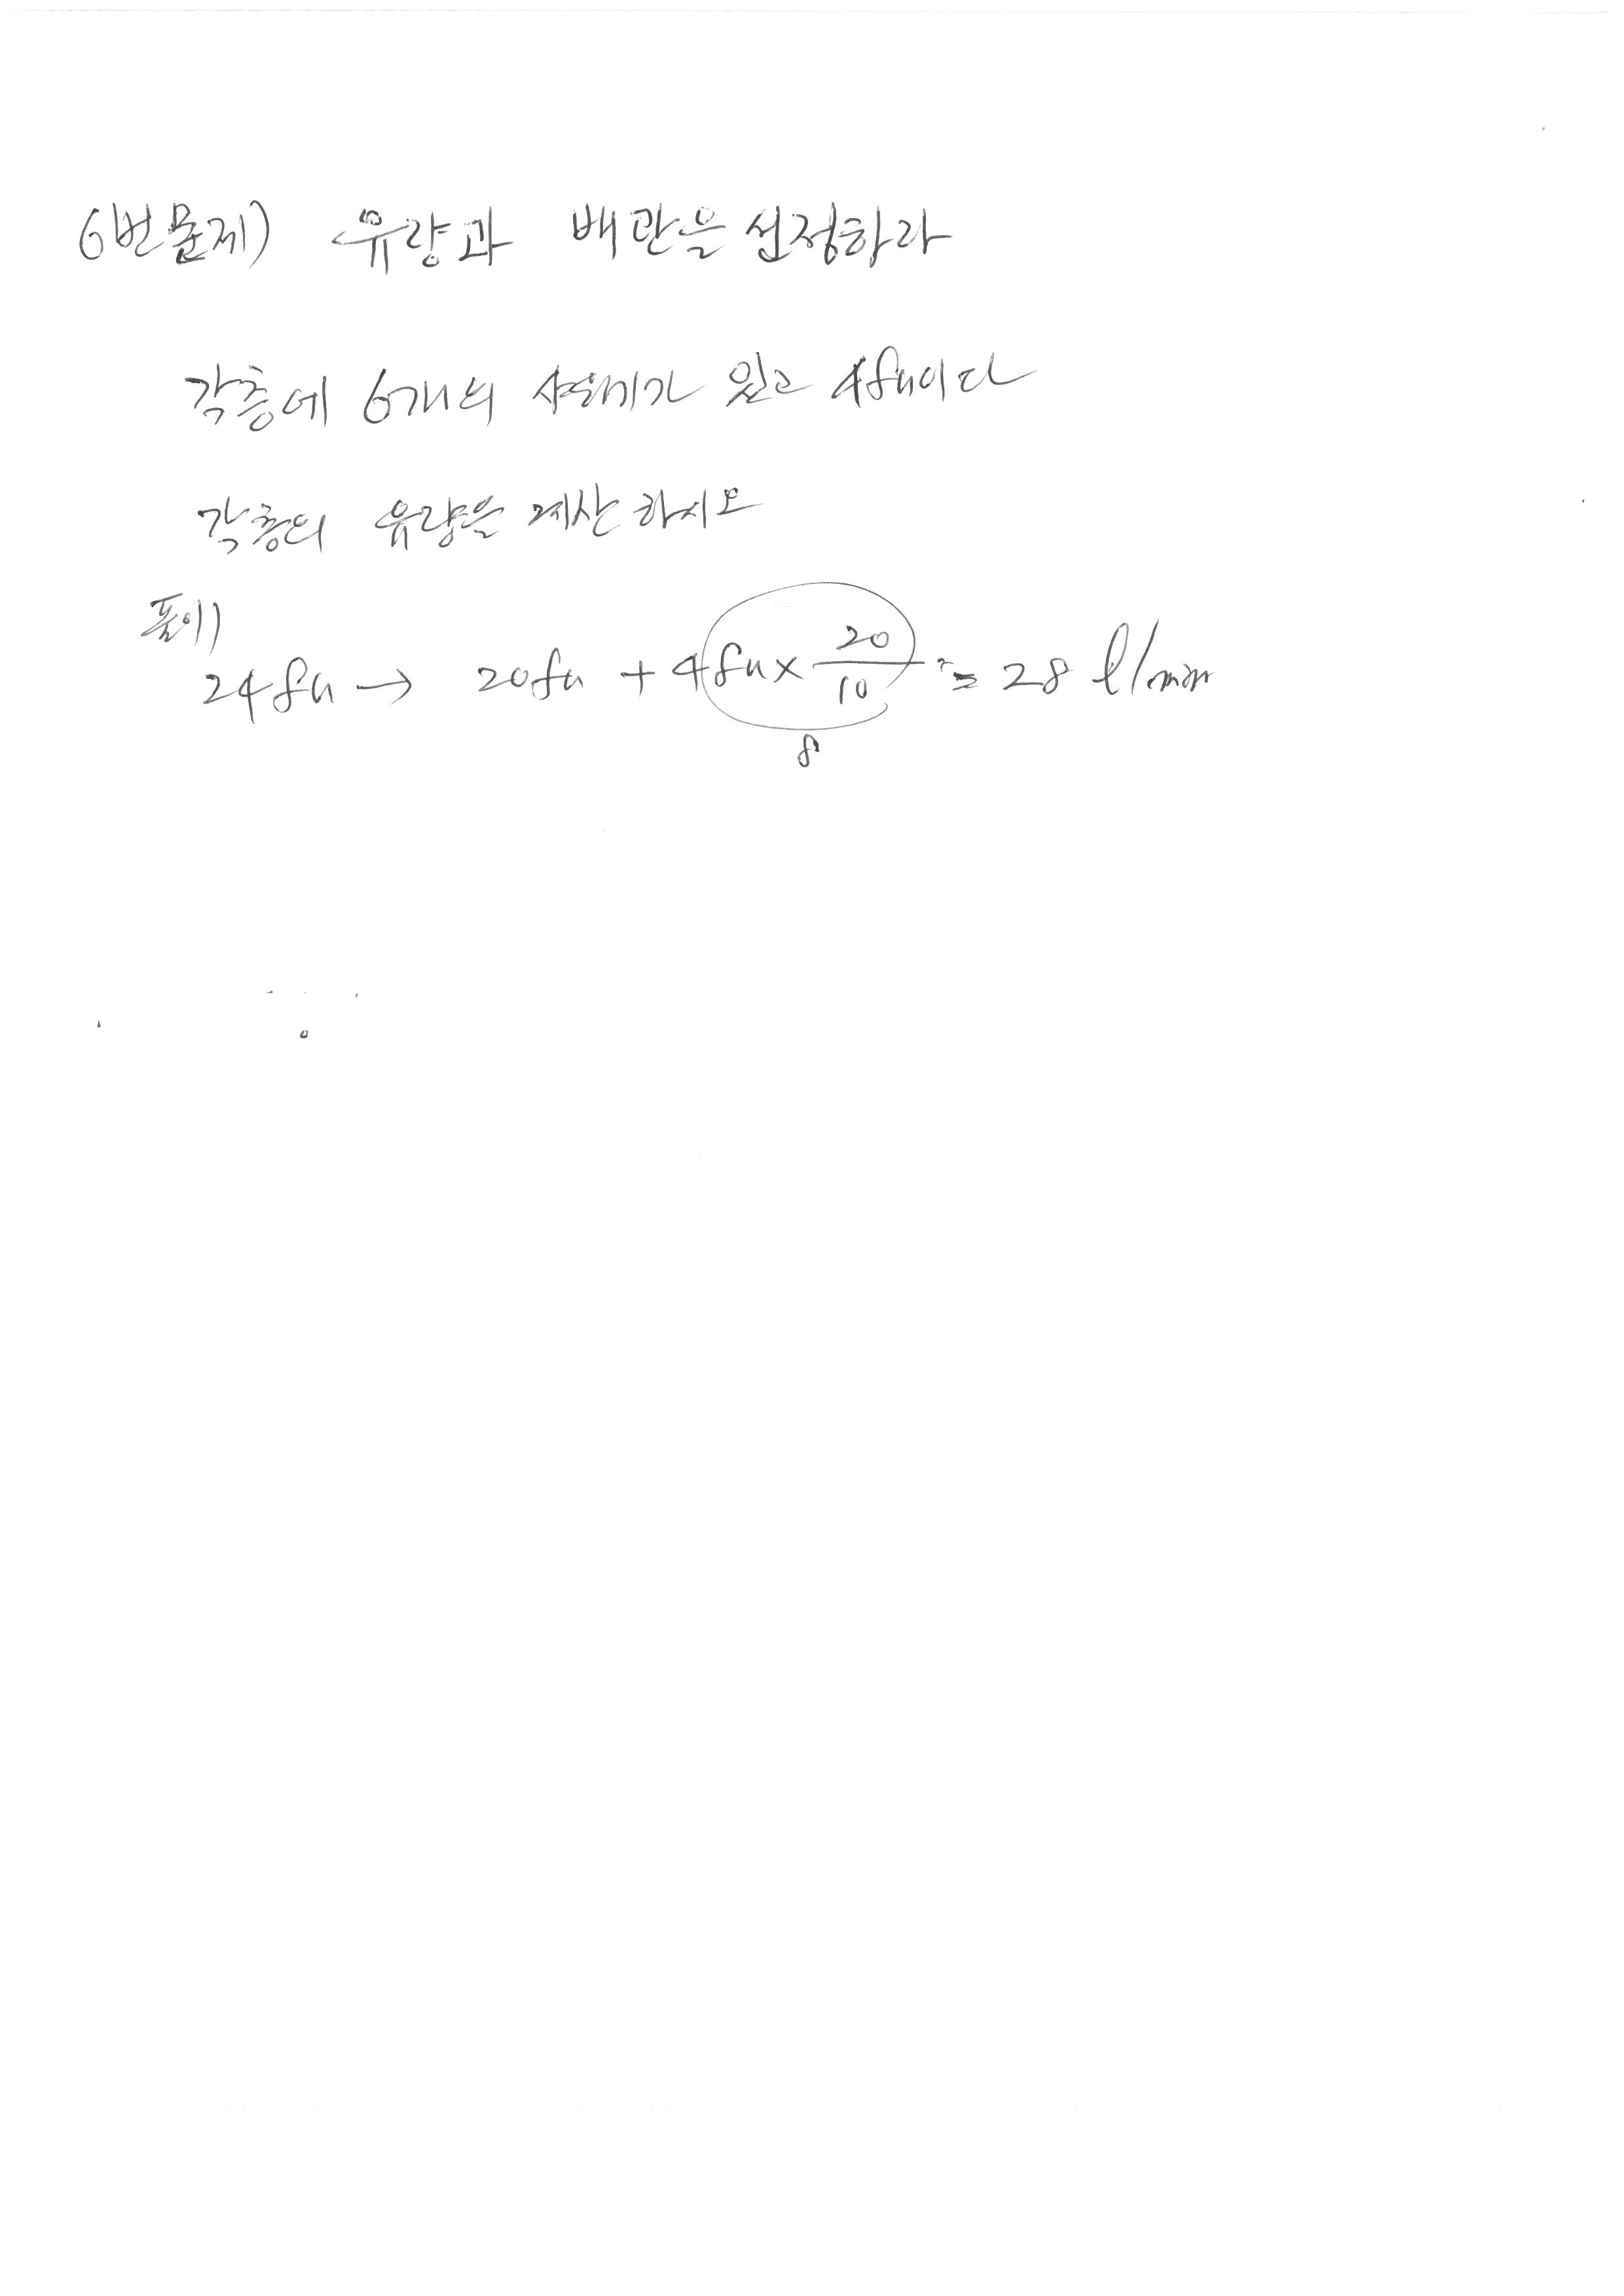 6번문제) 유량과 배관을 선정하라
각층에 6개의 샤워기가 있고 4fu이다
각층의 유량을 계산하시오
풀이)
24fu → 20fu + 4fu × 20/10 ≒ 28 l/min
8